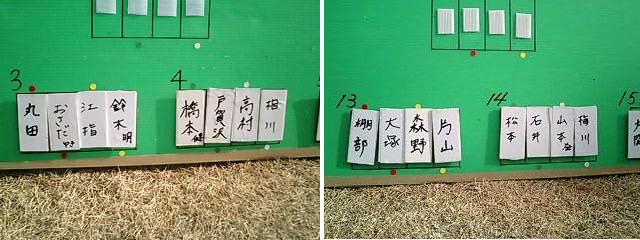 3
丸田
おさだ ゆき
江指
鈴木 明
4
橋本 健
戸賀沢
高村
相川
13
棚部
大塚
森野
片山
14
松本
石井
山本
梅川
15